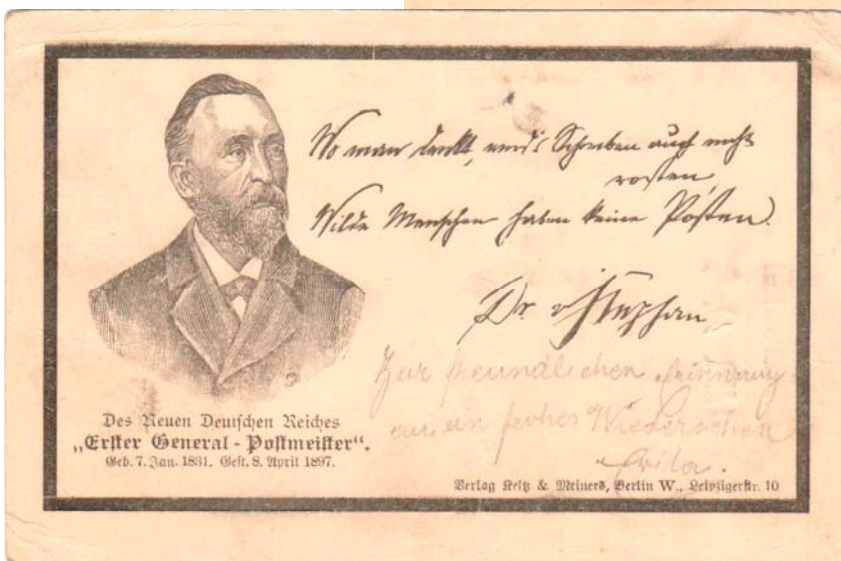 Wo man denkt, wird's Schreiben auch nicht
rosten
Wilde Menschen haben keine Posten.
Dr. v Stephan
Zur freundlichen Erinnerung
an ein frohes Wiedersehen
Des Neuen Deutschen Reiches
„Erster General-Postmeister“.
Geb. 7. Jan. 1831. Gest. 8. April 1897.
Verlag Keltz & Meiners, Berlin W., Leipzigerstr. 10